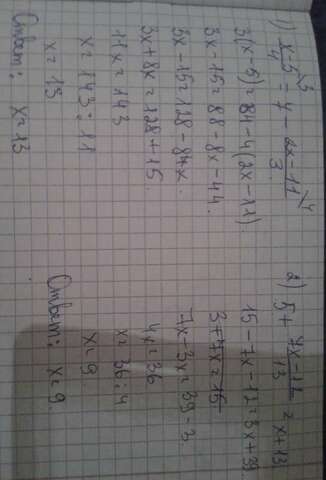 1) x-5/4 ⁽³ = 7 - 2x-11/3 ⁽⁴
3(x-5) = 84 - 4(2x-11)
3x-15 = 88 - 8x - 44.
3x-15 = 128 - 8x.
3x+8x = 128+15.
11x = 143
x = 143 : 11
x = 13
Ответ: x=13
2) 5+ 7x-12/3 = x+13
15-7x-12 = 3x+39
3+7x = 15
7x-3x = 39-3
4x = 36
x = 36:4
x = 9.
Ответ: x=9.